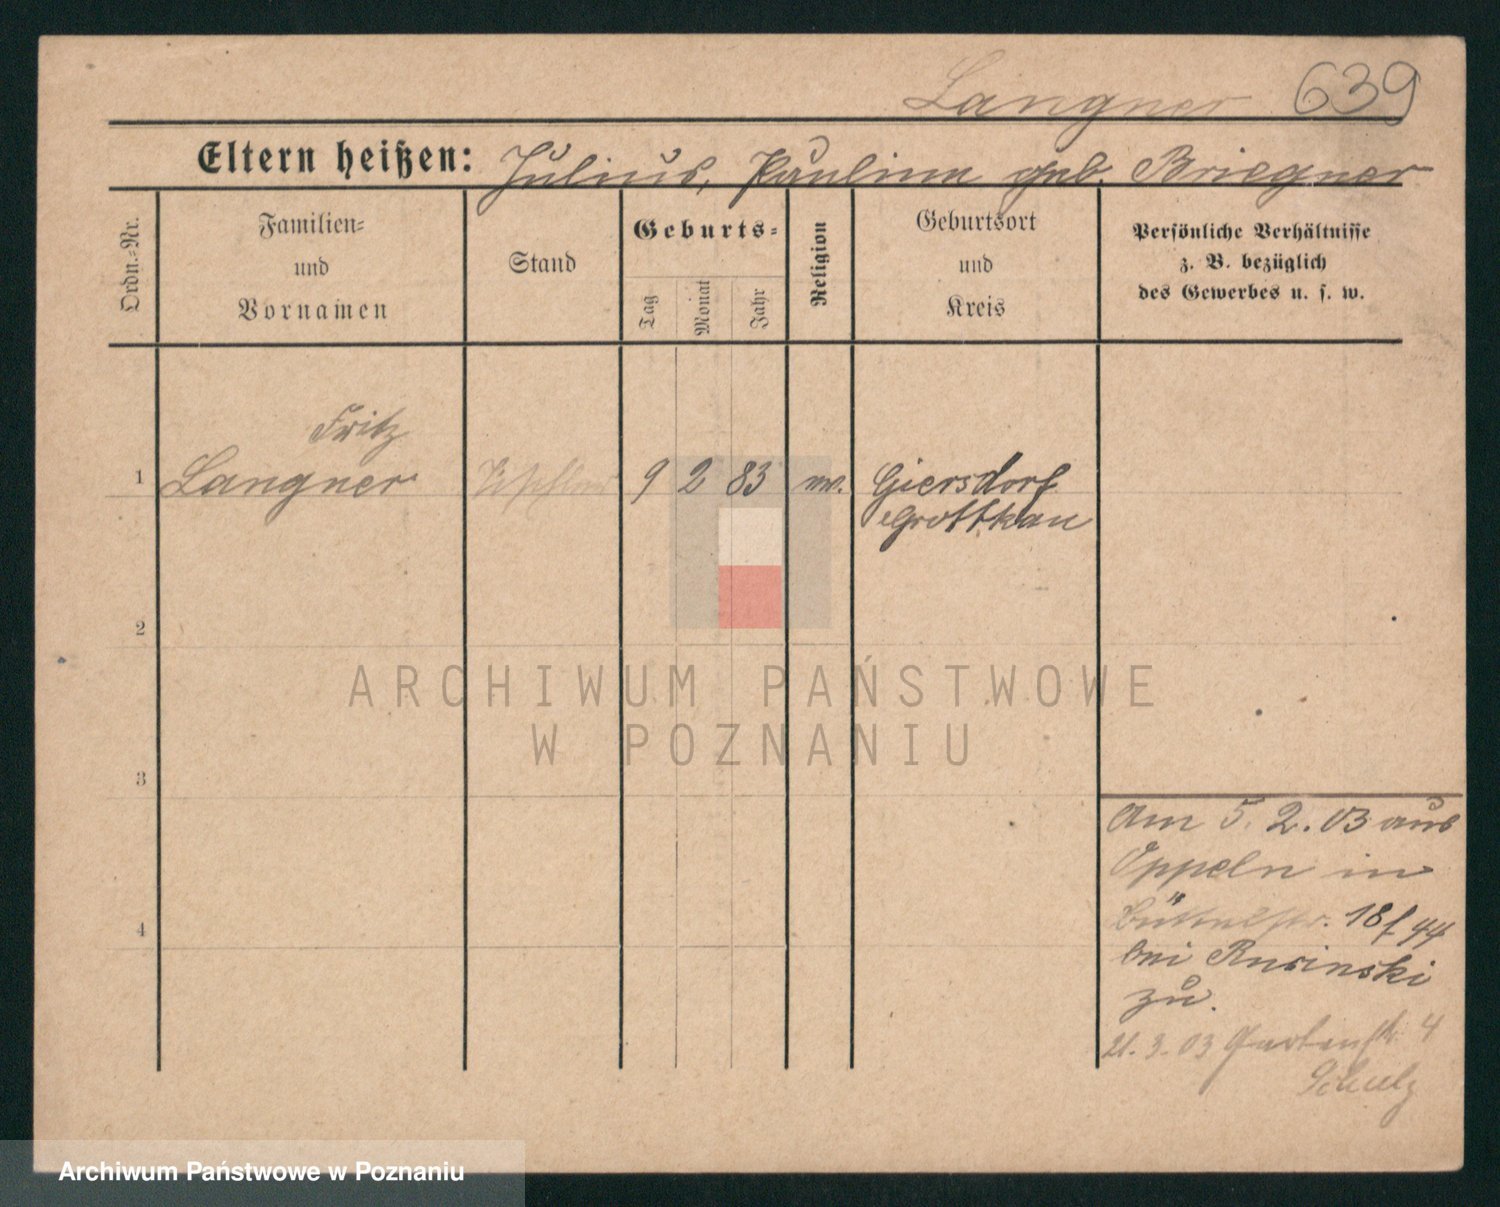 Langner 639
Eltern heißen: Julius, Pauline geb. Briegner
Ordn.-Nr.
Familien-
und
Vornamen
Stand
Geburts-
Tag
Monat
Jahr
Religion
Geburtsort
und
Kreis
Persönliche Verhältnisse
z. B. bezüglich
des Gewerbes u. s. w.
Fritz
1 Langner 9 2 83 ev. Giersdorf
Grottkau
2
3
4
Am 5. 2. 03 aus
Oppeln in
Büttelstr. 18 f 44
bei Rusinski
zu.
21. 3. 03 Gartenstr. 4
Schulz
ARCHIWUM PAŃSTWOWE
W POZNANIU
Archiwum Państwowe w Poznaniu